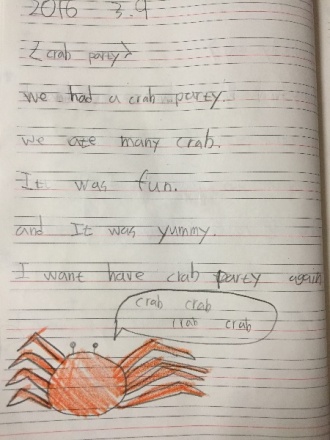 2016 3.9
<crab party>
we had a crab party.
we ate many crab.
It was fun.
and It was yummy.
I want have crab party again
crab crab
crab crab